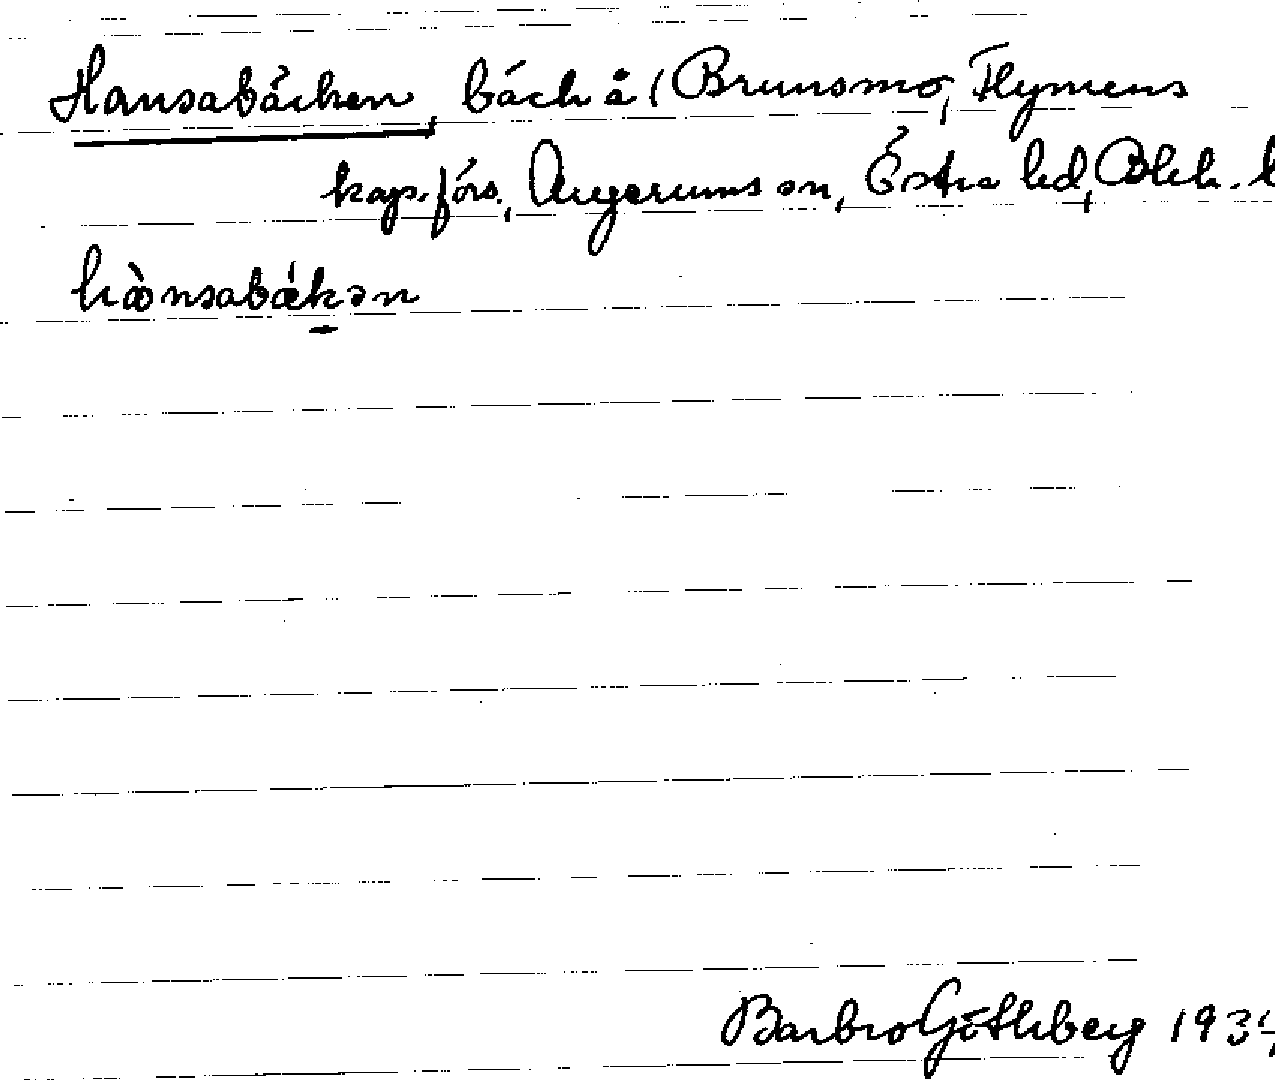 Hansabäcken, bäck å (Brunsmo, Flymens
kap.förs., Augerums sn, Östra hd, Blek. l
hànsabækən
Barbro Göthberg 1934